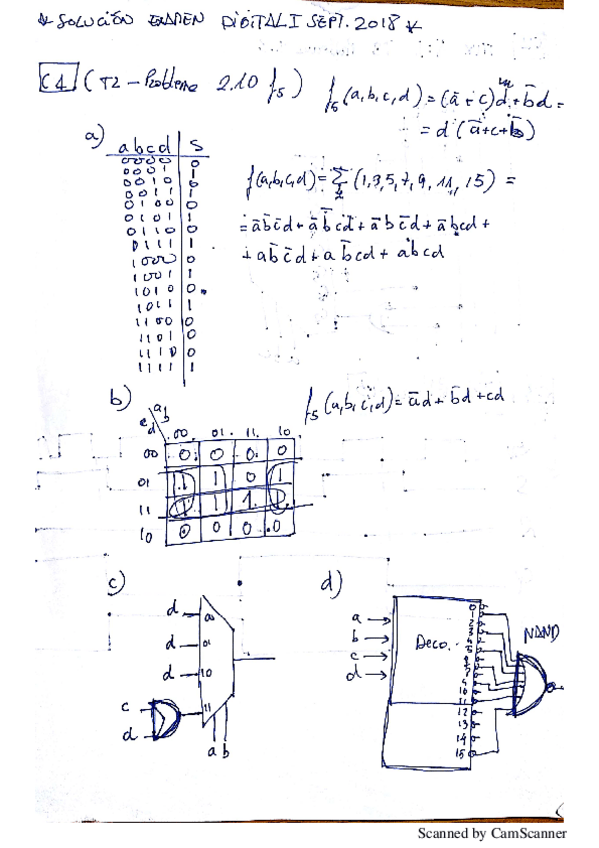 * SOLUCIÓN EXAMEN DIGITAL I SEPT. 2018 *
C4 (T2 - Problema 2.10 f5) f5(a,b,c,d) = (ā + c)d + b̄d =
= d (ā+c+b̄)
a)
abcd S
0000 0
0001 1
0010 0
0011 1
0100 0
0101 1
0110 0
0111 1
1000 0
1001 1
1010 0
1011 1
1100 0
1101 0
1110 0
1111 1
f(a,b,c,d) = Σ (1,3,5,7,9,11,15) =
= āb̄c̄d + āb̄cd + ābc̄d + ābcd +
+ ab̄c̄d + ab̄cd + abcd
b)
ab
cd
00 01 11 10
00 0 0 0 0
01 1 1 0 1
11 1 1 1 1
10 0 0 0 0
f5(a,b,c,d) = ād + b̄d + cd
c)
d 00
d 01
d 10
c
d
11
a b
d)
a
b
c
d
Deco.
0
1
2
3
9
10
11
12
13
14
15
NAND
Scanned by CamScanner